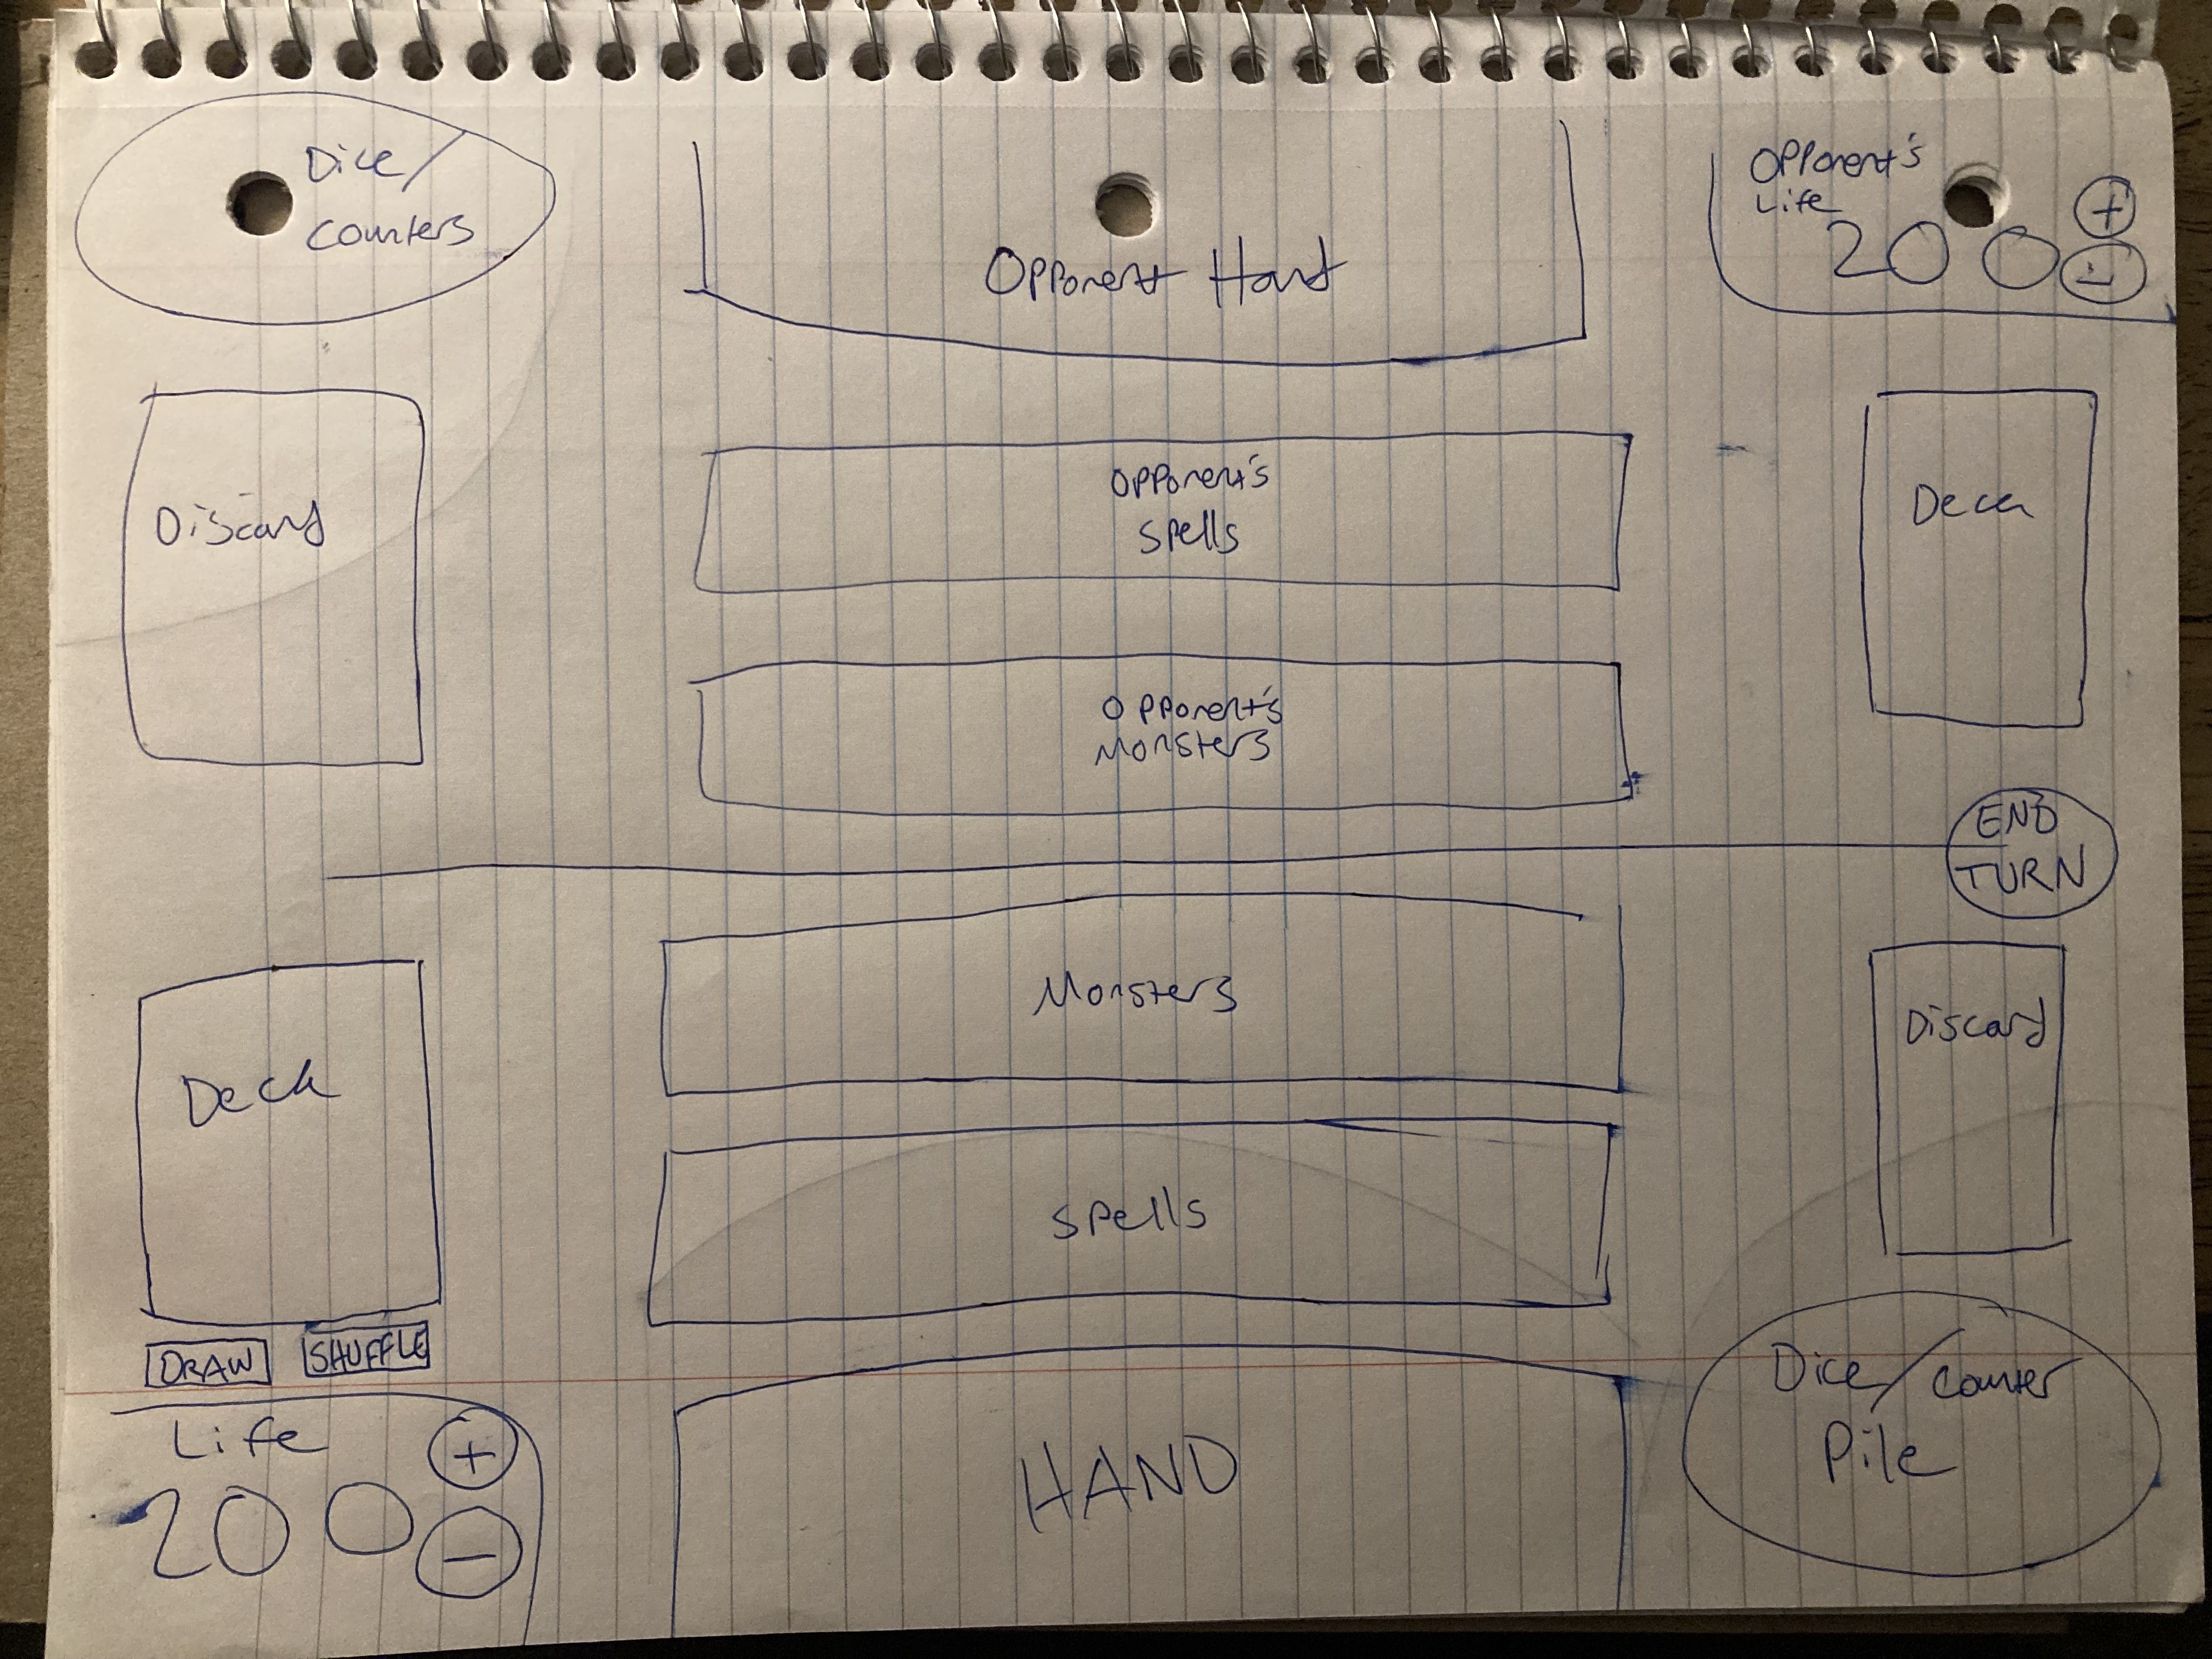 Dice/
Counters
Opponent Hand
Opponent's
Life
200
+
-
Discard
Opponent's
Spells
Deck
Opponent's
Monsters
END
TURN
Monsters
Deck
Discard
Spells
DRAW
SHUFFLE
Life
200
+
-
HAND
Dice/Counter
Pile